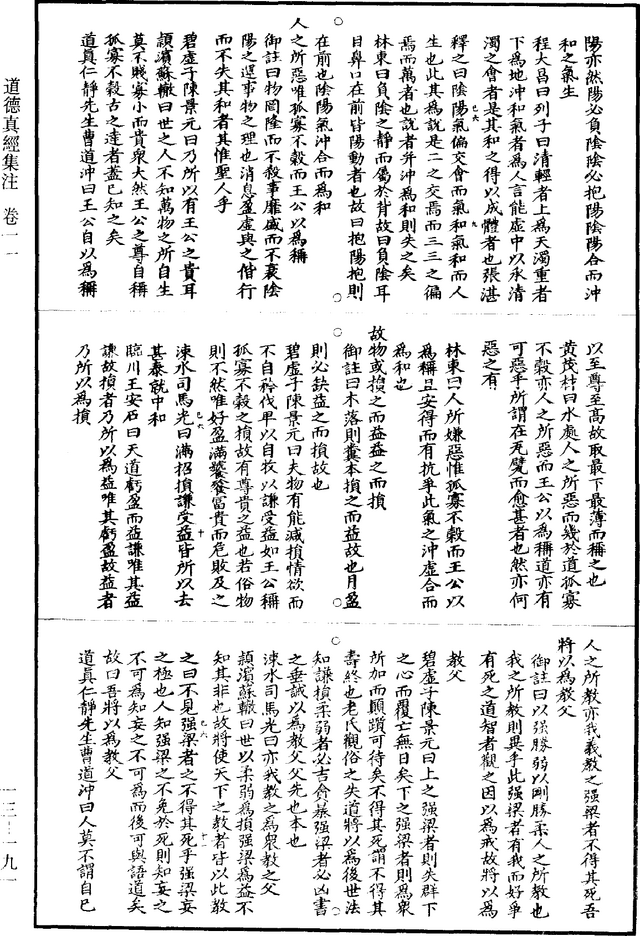 道德真經集注 卷一一
一三—一九一
陽亦然陽必負陰陰必抱陽陰陽合而沖
和之氣生
程大昌曰列子曰清輕者上爲天濁重者
下爲地沖和氣者爲人言能虛中以承清
濁之會者是其和之得以成體者也張湛
釋之曰陰陽氣偏交會而氣和氣和而人
生也此其爲說是二之交焉而三三之徧
焉而萬者也說者并沖爲和則失之矣
林東曰負陰之靜而屬於背故曰負陰耳
目鼻口在前皆陽動者也故曰抱陽抱則
在前也陰陽氣沖合而爲和
人之所惡唯孤寡不穀而王公以爲稱
御註曰物罔隆而不殺事靡盛而不衰陰
陽之運事物之理也消息盈虛與之偕行
而不失其和者其惟聖人乎
碧虛子陳景元曰乃所以有王公之貴耳
潁濱蘇轍曰世之人不知萬物之所自生
莫不賤寡小而貴衆大然王公之尊自稱
孤寡不穀古之達者蓋已知之矣
道眞仁靜先生曹道沖曰王公自以爲稱
以至尊至高故取最下最薄而稱之也
黄茂材曰水處人之所惡而幾於道孤寡
不穀亦人之所惡而王公以爲稱道亦有
可惡乎所謂在兂甓而愈甚者也然亦何
惡之有
林東曰人所嫌惡惟孤寡不穀而王公以
爲稱且安得而有抗乎此氣之沖虛合而
爲和也
故物或損之而益益之而損
御註曰木落則糞本損之而益故也月盈
則必缺益之而損故也
碧虛子陳景元曰夫物有能減損情欲而
不自矜伐卑以自牧以謙受益如王公稱
孤寡不穀之損故有尊貴之益也若俗物
則不然唯好盈滿饕餮富貴而危敗及之
涑水司馬光曰滿招損謙受益皆所以去
其泰就中和
臨川王安石曰天道虧盈而益謙唯其益
謙故損者乃所以爲益唯其虧盈故益者
乃所以爲損
人之所教亦我義教之强梁者不得其死吾
將以爲教父
御註曰以强勝弱以剛勝柔人之所教也
我之所教則異乎此强梁者有我而好爭
有死之道智者觀之因以爲戒故將以爲
教父
碧虛子陳景元曰上之强梁者則失群下
之心而覆亡無日矣下之强梁者則爲衆
所加而顛躓可待矣不得其死謂不得其
壽終也老氏觀俗之失道將以爲後世法
知謙損柔弱者必吉貪暴强梁者必凶書
之垂誡以爲教父父先也本也
涑水司馬光曰亦我教之爲衆教之父
潁濱蘇轍曰世以柔弱爲損强梁爲益不
知其非也故將使天下之教者皆以此教
之曰不見强梁者之不得其死乎强梁妄
之極也人知强梁之不免於死則知妄之
不可爲知妄之不可爲而後可與語道矣
故曰吾將以爲教父
道眞仁靜先生曹道沖曰人莫不謂自已